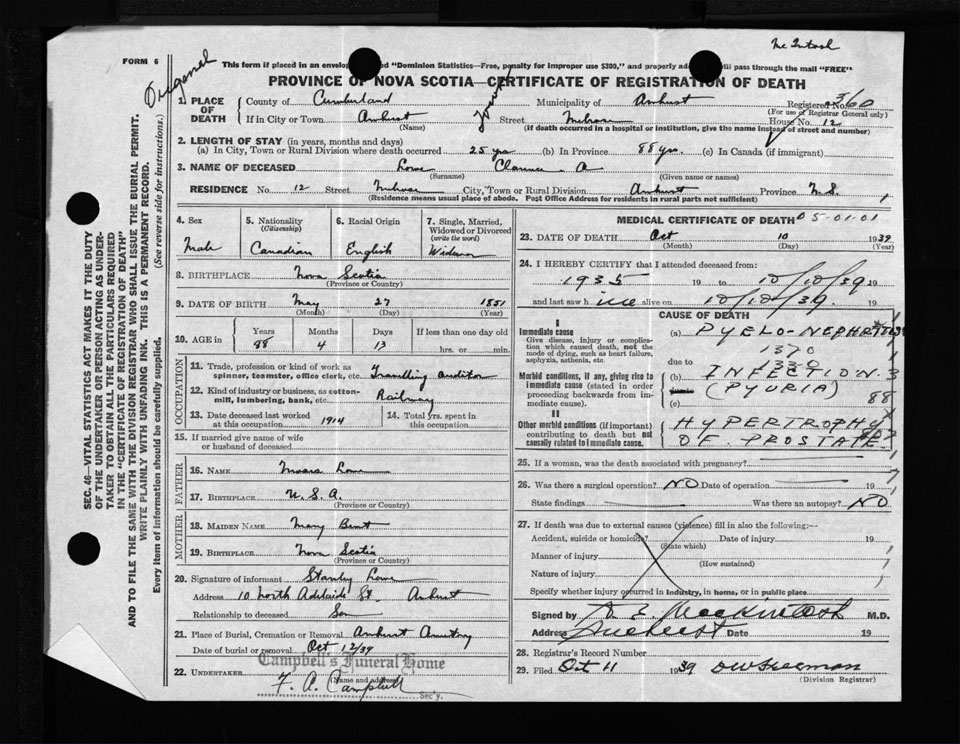 Mc Intosh
FORM 6
Original
This form if placed in an envelope "Dominion Statistics—Free, penalty for improper use $300," and properly will pass through the mail "FREE"
PROVINCE OF NOVA SCOTIA—CERTIFICATE OF REGISTRATION OF DEATH
1. PLACE OF DEATH County of Cumberland Municipality of Amherst Registered No. 3160
(For use of Registrar General only)
If in City or Town Amherst Street House No. 12
(Name) (If death occurred in a hospital or institution, give the name instead of street and number)
2. LENGTH OF STAY (in years, months and days)
(a) In City, Town or Rural Division where death occurred 25 yrs (b) In Province 88 yrs (c) In Canada (if immigrant)
3. NAME OF DECEASED Lowe Clarence A
(Surname) (Given name or names)
RESIDENCE No. 12 Street City, Town or Rural Division Amherst Province N.S.
(Residence means usual place of abode. Post Office Address for residents in rural parts not sufficient)
4. Sex
Male
5. Nationality (Citizenship)
Canadian
6. Racial Origin
English
7. Single, Married, Widowed or Divorced (write the word)
Widower
8. BIRTHPLACE Nova Scotia
(Province or Country)
9. DATE OF BIRTH May 27 1851
(Month) (Day) (Year)
10. AGE in Years Months Days If less than one day old
88 4 13 hrs. or min.
OCCUPATION
11. Trade, profession or kind of work as spinner, teamster, office clerk, etc. Travelling auditor
12. Kind of industry or business, as cotton-mill, lumbering, bank, etc. Railway
13. Date deceased last worked at this occupation 1914
14. Total yrs. spent in this occupation
15. If married give name of wife or husband of deceased
FATHER
16. NAME Lowe
17. BIRTHPLACE U.S.A.
(Province or Country)
MOTHER
18. MAIDEN NAME Mary
19. BIRTHPLACE Nova Scotia
(Province or Country)
20. Signature of informant Stanley Lowe
Address 10 North Adelaide St. Amherst
Relationship to deceased Son
21. Place of Burial, Cremation or Removal Amherst Cemetery
Date of burial or removal Oct 12/39
Campbell's Funeral Home
22. UNDERTAKER F. A. Campbell
(Name and address)
Sec'y.
MEDICAL CERTIFICATE OF DEATH 05-01-01
23. DATE OF DEATH Oct 10 1939
(Month) (Day) (Year)
24. I HEREBY CERTIFY that I attended deceased from:
1935 19 to 10/10/39 19
and last saw h im alive on 10/10/39. 19
CAUSE OF DEATH
I
Immediate cause
Give disease, injury or complication which caused death, not the mode of dying, such as heart failure, asphyxia, asthenia, etc.
(a) PYELO-NEPHRITIS
due to
Morbid conditions, if any, giving rise to immediate cause (stated in order proceeding backwards from immediate cause).
(b) INFECTION
(PYURIA)
(c)
88
II
Other morbid conditions (if important) contributing to death but not causally related to immediate cause.
HYPERTROPHY
OF PROSTATE
25. If a woman, was the death associated with pregnancy?
26. Was there a surgical operation? NO Date of operation 19
State findings Was there an autopsy? NO
27. If death was due to external causes (violence) fill in also the following:—
Accident, suicide or homicide? Date of injury 19
(State which)
Manner of injury
(How sustained)
Nature of injury
Specify whether injury occurred in industry, in home, or in public place
Signed by M.D.
Address Amherst Date 19
28. Registrar's Record Number
29. Filed Oct 11 1939
(Division Registrar)
SEC. 46—VITAL STATISTICS ACT MAKES IT THE DUTY
OF THE UNDERTAKER OR PERSON ACTING AS UNDERTAKER TO OBTAIN ALL THE PARTICULARS REQUIRED
IN THE "CERTIFICATE OF REGISTRATION OF DEATH"
AND TO FILE THE SAME WITH THE DIVISION REGISTRAR WHO SHALL ISSUE THE BURIAL PERMIT.
WRITE PLAINLY WITH UNFADING INK. THIS IS A PERMANENT RECORD.
Every item of information should be carefully supplied. (See reverse side for instructions.)